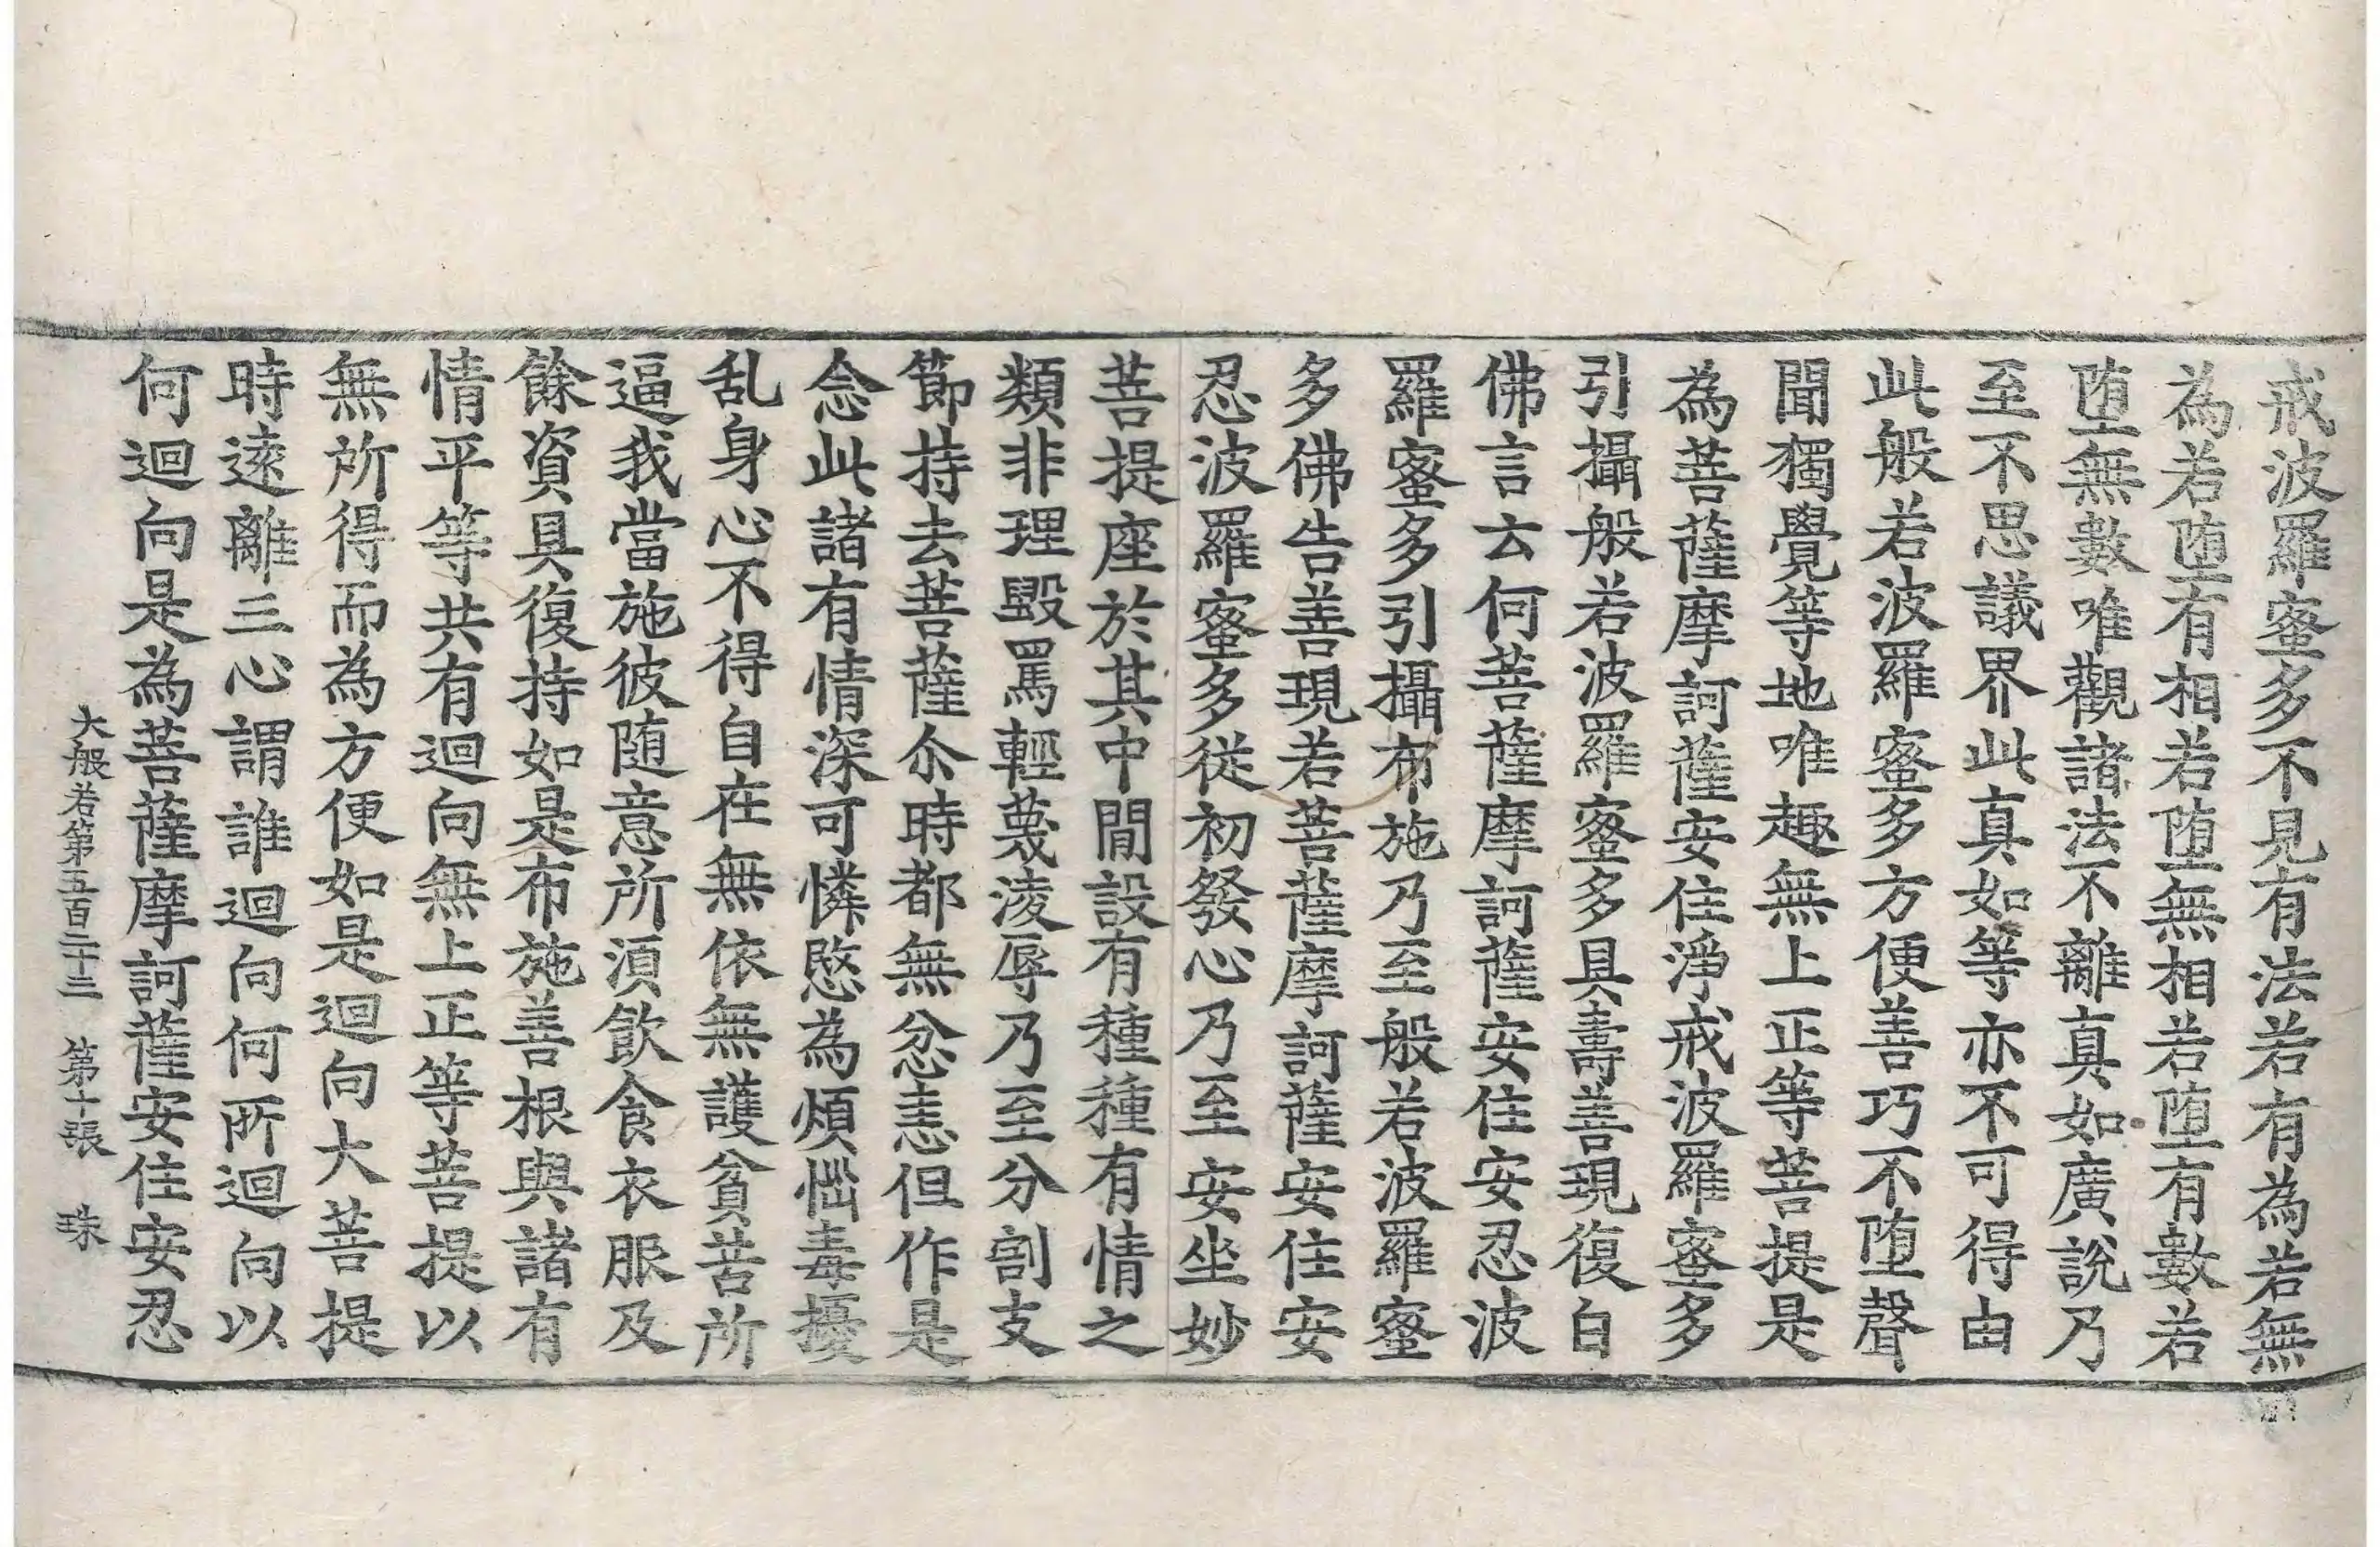 戒波羅蜜多不見有法若有為若無
為若堕有相若堕無相若堕有數若
堕無數唯觀諸法不離真如廣說乃
至不思議界此真如等亦不可得由
此般若波羅蜜多方便善巧不堕聲
聞獨覺等地唯趣無上正等菩提是
為菩薩摩訶薩安住淨戒波羅蜜多
引攝般若波羅蜜多具壽善現復白
佛言云何菩薩摩訶薩安住安忍波
羅蜜多引攝布施乃至般若波羅蜜
多佛告善現若菩薩摩訶薩安住安
忍波羅蜜多従初發心乃至安坐妙
菩提座於其中間設有種種有情之
類非理毀罵輕蔑淩辱乃至分割支
節持去菩薩尒時都無忿恚但作是
念此諸有情深可憐愍為煩惱毒擾
乱身心不得自在無依無護貧苦所
逼我當施彼随意所須飲食衣服及
餘資具復持如是布施善根與諸有
情平等共有迴向無上正等菩提以
無所得而為方便如是迴向大菩提
時遠離三心謂誰迴向何所迴向以
何迴向是為菩薩摩訶薩安住安忍
大般若第五百二十三　第十張　珠